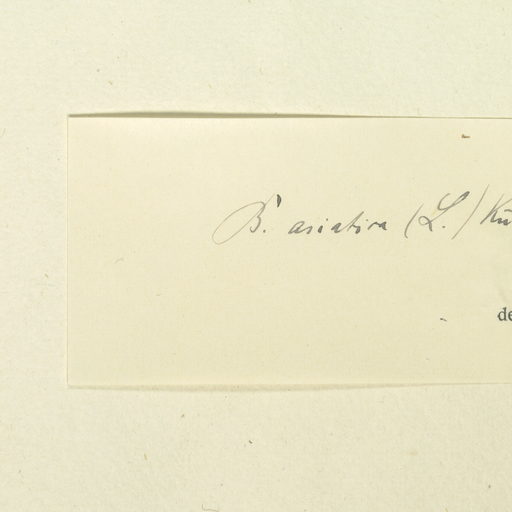 B. asiatica (L.) Kü
de